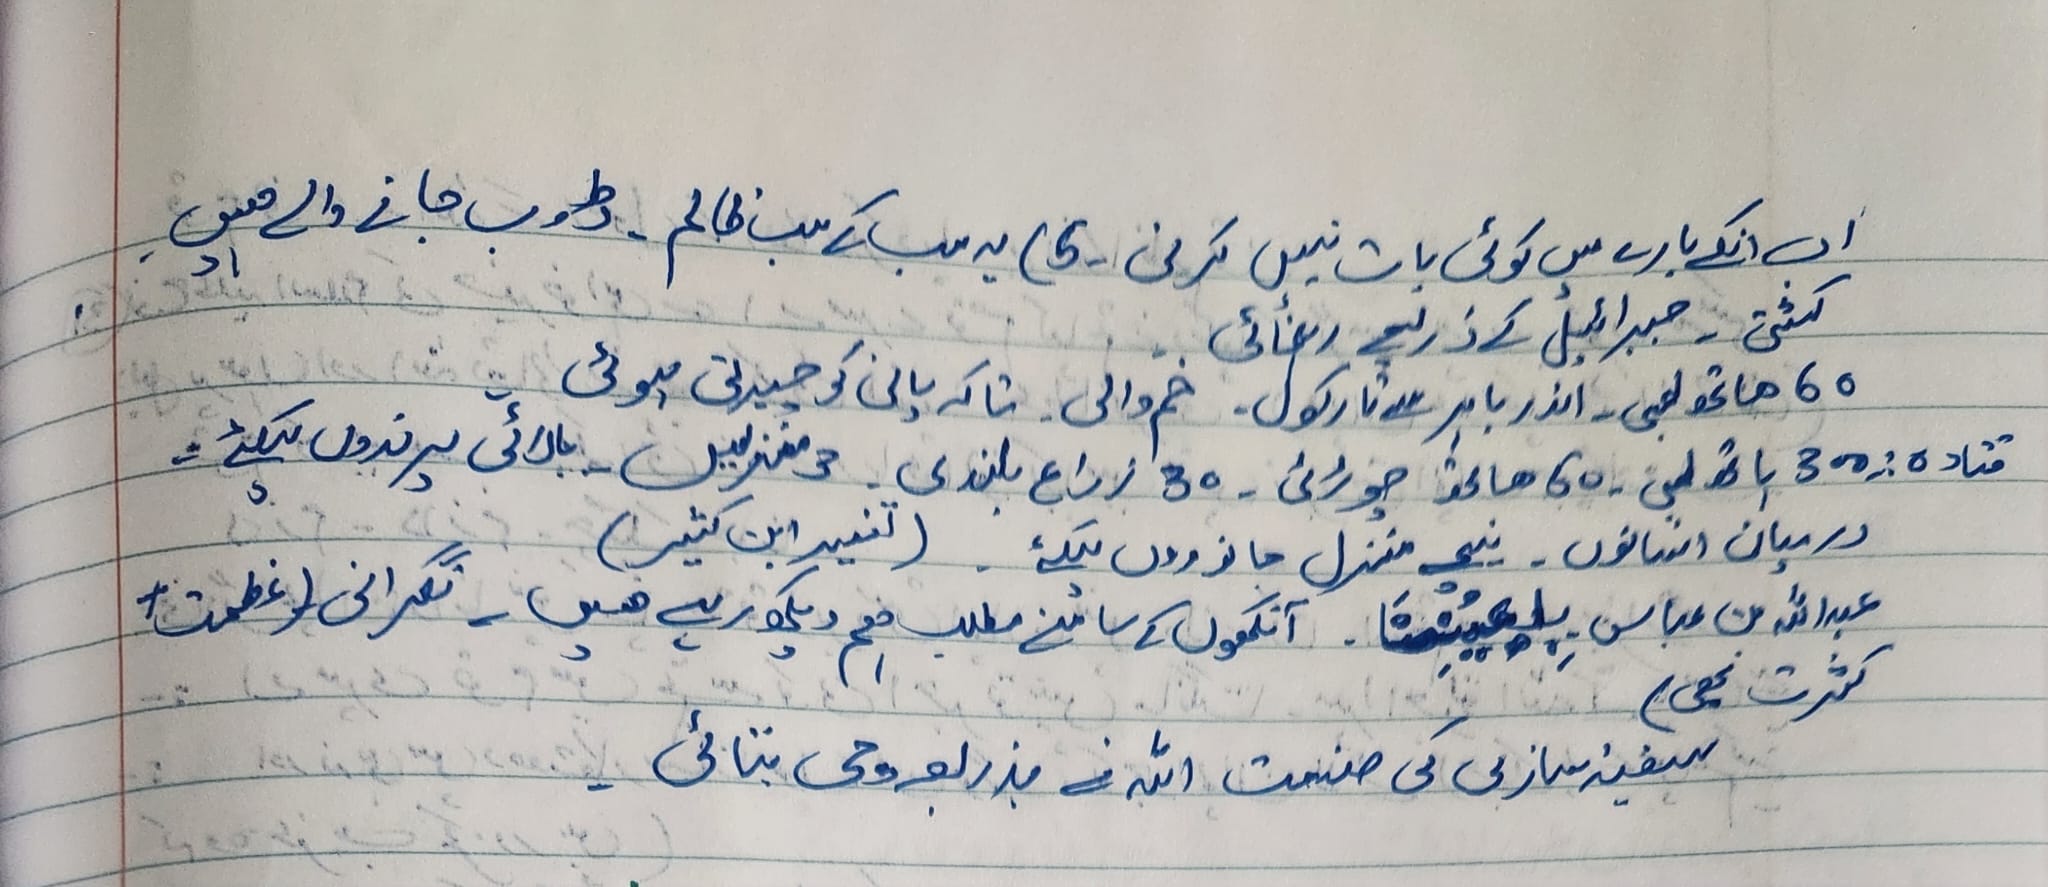 اب انکے بارے میں کوئی بات نہیں کرنی۔ 5) یہ سب کے سب ظالم۔ ڈوب جانے والے ہیں۔
کشتی۔ جبرائیلؑ کے ذریعے رہنمائی۔
60 ہاتھ لمبی۔ اندر باہر سے تارکول۔ خم والی۔ تاکہ پانی کو چیرتی ہوئی۔
قتادہ: 300 ہاتھ لمبی۔ 60 ہاتھ چوڑائی۔ 30 ذراع بلندی۔ 3 منزلیں۔ بالائی پرندوں کیلئے۔
درمیان انسانوں۔ نیچے منزل جانوروں کیلئے۔ (تفسیر ابن کثیر)
عبداللہ بن عباس۔ بِاَعْيُنِنَا۔ آنکھوں کے سامنے مطلب ہم دیکھ رہے ہیں۔ نگرانی (عظمت +
کثرت بھی)
سفینہ سازی کی صنعت اللہ نے بذریعہ وحی بتائی۔